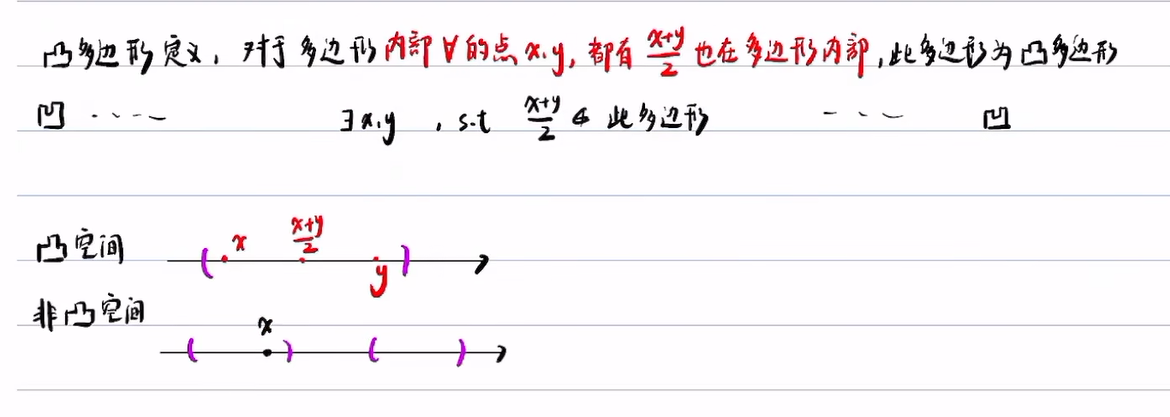 凸多边形定义，对于多边形内部∀的点x,y，都有 (x+y)/2 也在多边形内部，此多边形为凸多边形
凹 ····— ∃x,y ，s.t (x+y)/2 ∉ 此多边形 — · · — 凹
凸空间 ( x (x+y)/2 y )
非凸空间 ( x ) ( )